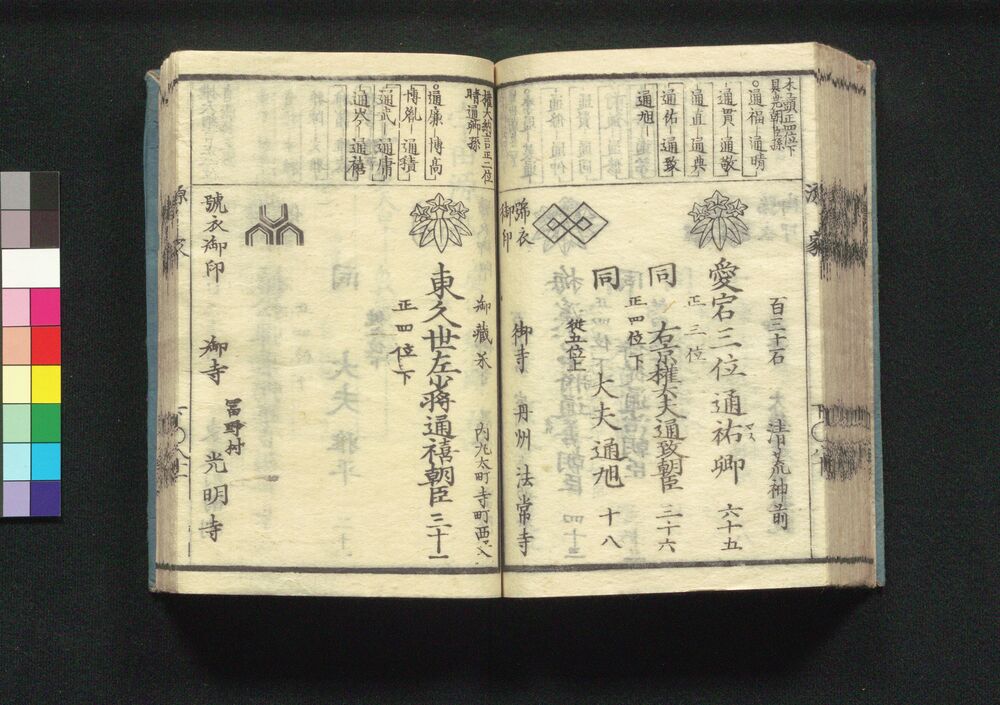 源家
木工頭正四位下
具光朝臣孫
通福―通晴
通貫―通敬
通直―通典
通佑―通致
通旭―
百三十石
清荒神前
愛宕三位通祐卿 六十五
正三位
同 右京権大夫通致朝臣 三十六
正四位下
同 大夫通旭 十八
従五位上
號衣
御印
御寺 丹州 法常寺
権大納言正二位
晴通卿孫
通廉―博高
博胤―通積
通武―通庸
通岑―通禧
御藏米
内丸太町寺町西へ入
東久世左少将通禧朝臣 三十一
正四位下
號衣御印
御寺 冨野村 光明寺
源家